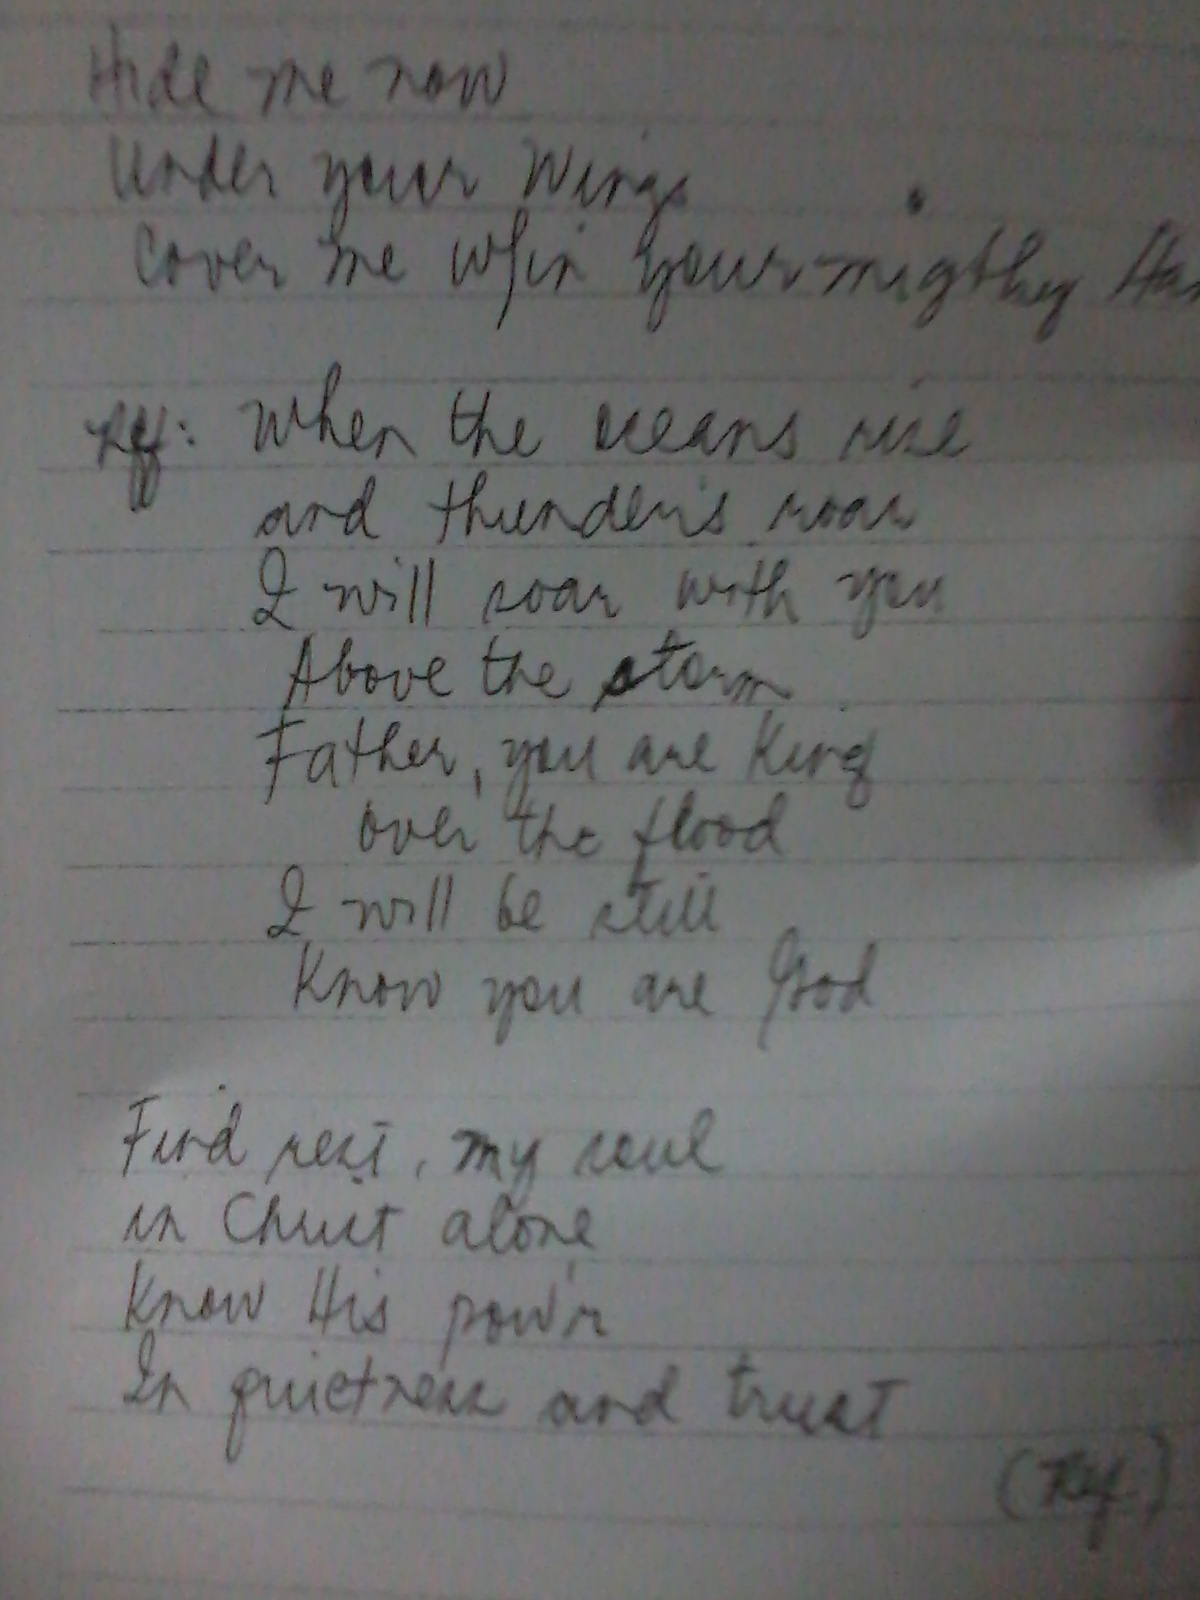 Hide me now
Under your Wings
Cover me w/in your migthy
Reff: When the oceans rise
and thunder's roar
I will soar with you
Above the storm
Father, you are King
over the flood
I will be still
Know you are God
Find rest, my soul
in Christ alone
Know His pow'r
In quietness and trust
(Ref.)